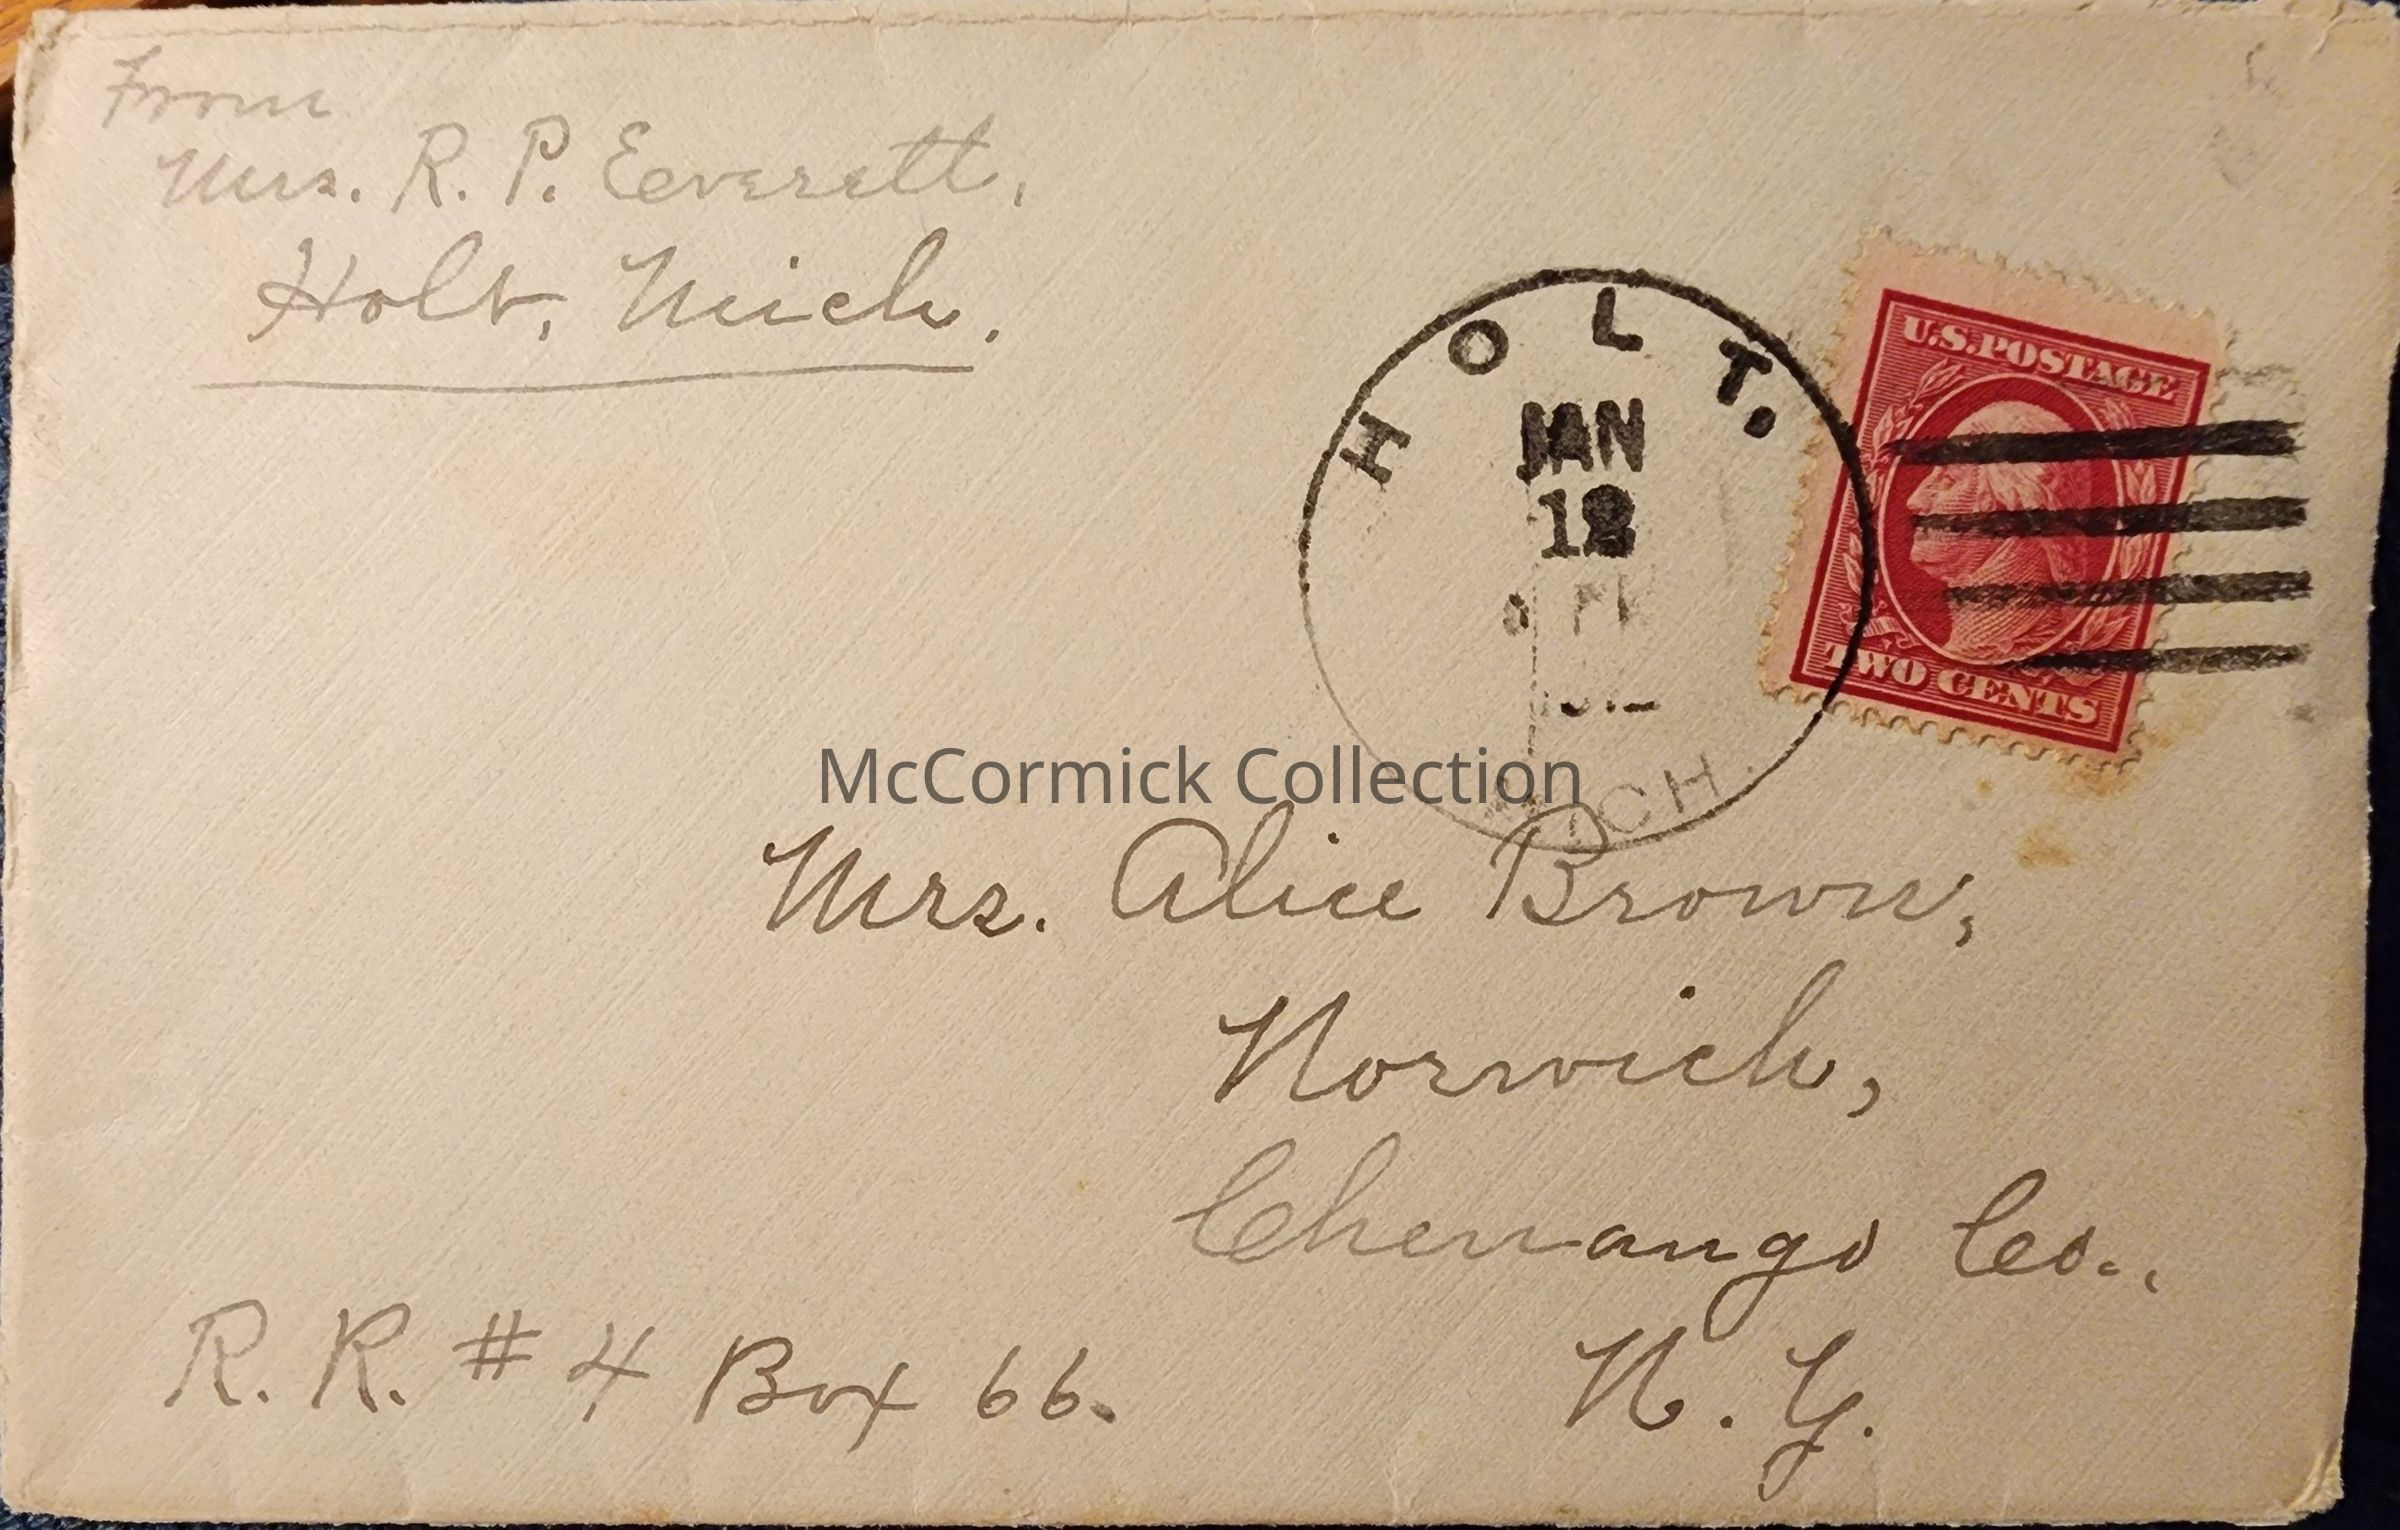 From
Mrs. R. P. Eeverett,
Holt, Mich.
HOLT.
JAN
12
MICH.
U.S. POSTAGE
TWO CENTS
McCormick Collection
Mrs. Alice Brown,
Norwich,
Chenango Co.,
N. Y.
R. R. # 4 Box 66.